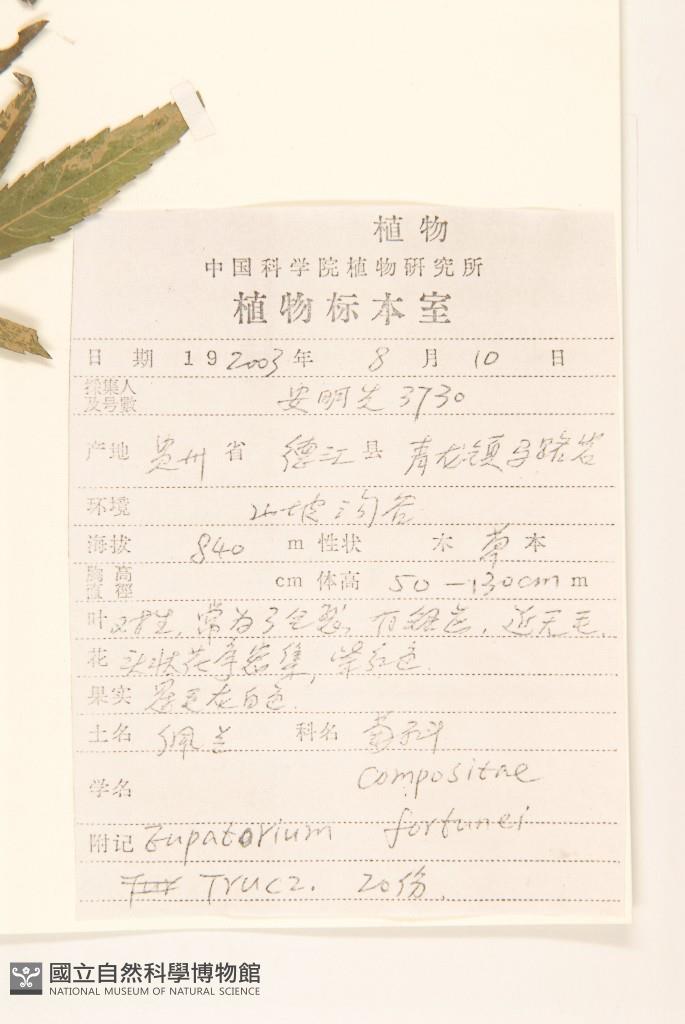 植物
中国科学院植物研究所
植物标本室
日期 19 2003 年 8 月 10 日
采集人及号数 安明先 3730
产地 贵州 省 德江 县 青龙镇马蹄岩
环境 山坡沟谷
海拔 840 m 性状 木 草 本
胸高直徑 cm 体高 50-130cm m
叶 对生, 常为3全裂, 有锯齿, 近无毛.
花 头状花序密集, 紫红色.
果实 冠毛灰白色.
土名 佩兰 科名 菊科
学名 Compositae
附记 Eupatorium fortunei
Turcz. 20份.
國立自然科學博物館
NATIONAL MUSEUM OF NATURAL SCIENCE